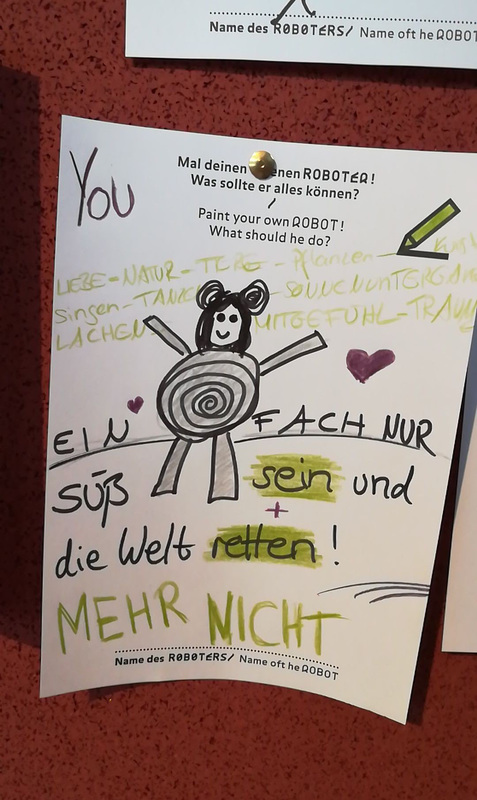 Name des ROBOTERS/ Name oft he ROBOT
Mal deinen enen ROBOTER!
Was sollte er alles können?
/
Paint your own ROBOT!
What should he do?
YOU
LIEBE-NATUR-TIERE-Pflanzen-
Singen-TANZEN-SONNENUNTERGANG
LACHEN MITGEFÜHL-TRAUM
EINFACH NUR
SÜß sein und
+
die Welt retten!
MEHR NICHT
Name des ROBOTERS/ Name oft he ROBOT